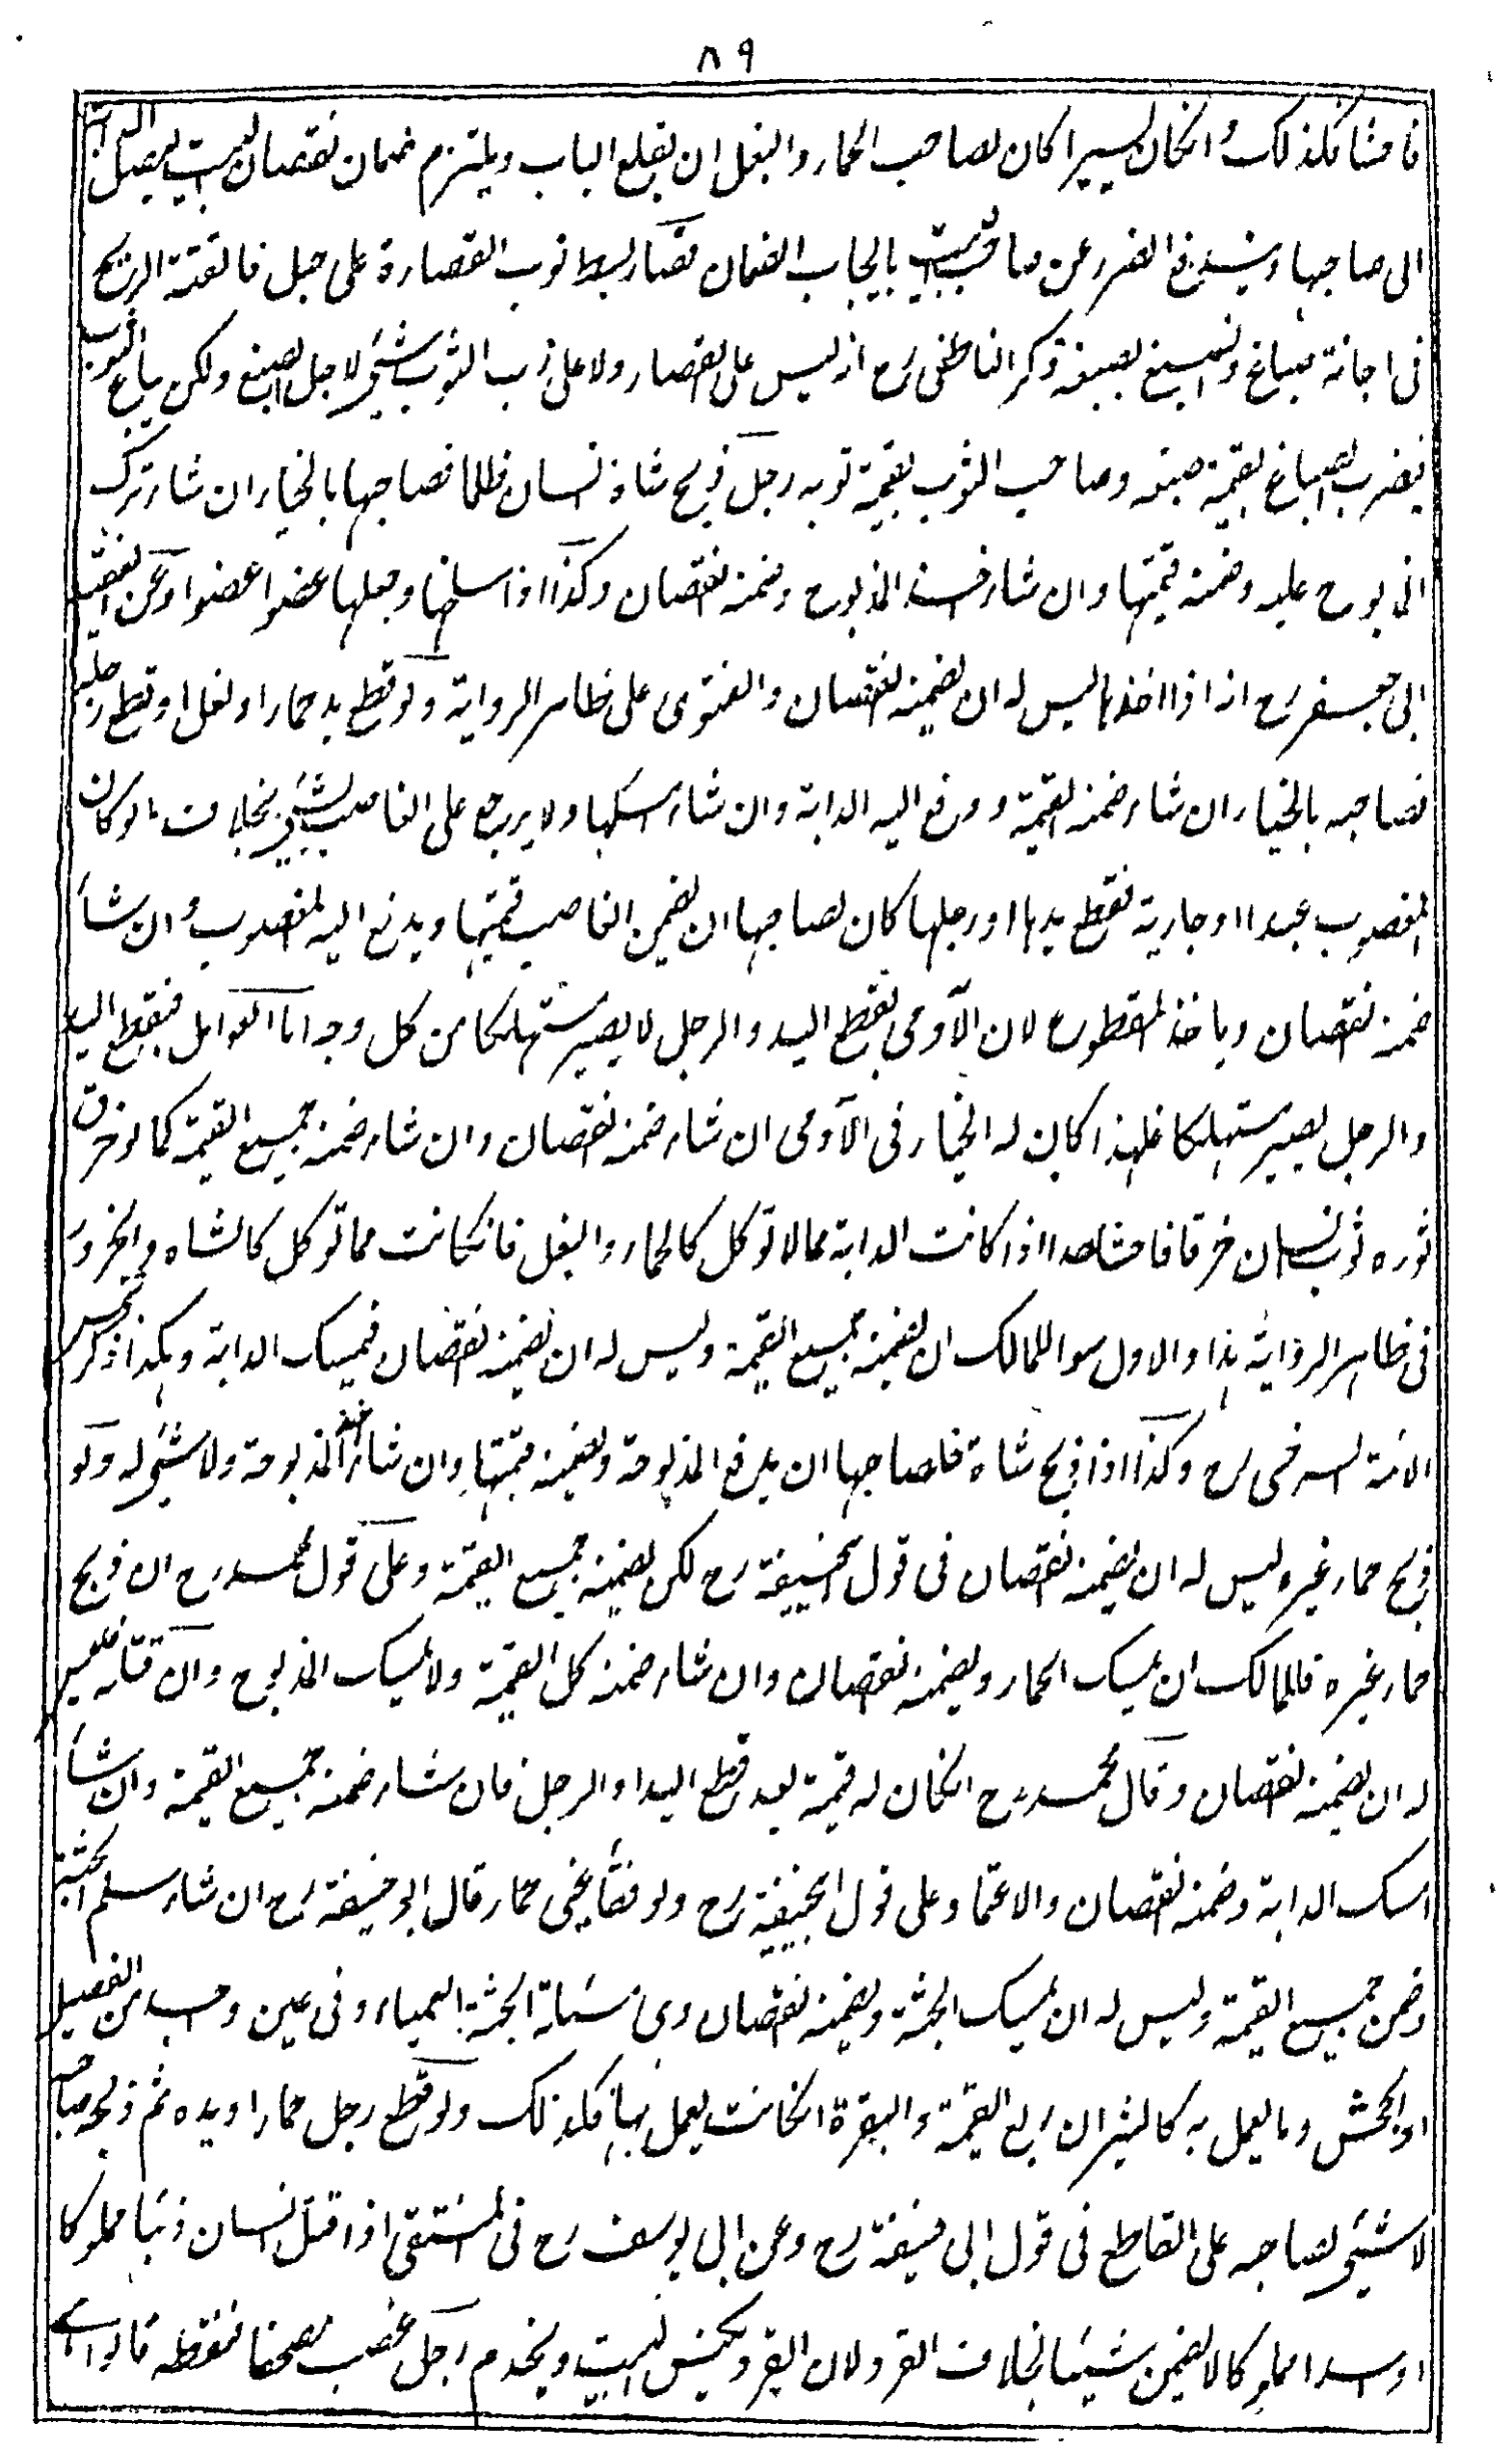 ٨٩
فاحشا فكذلك وانكان يسيرا كان لصاحب الحمار والبغل ان يقلع الباب ويلتزم ضمان نقصان البيت ليصل البر
الى صاحبها ويندفع الضرر عن صاحب البيت بايجاب الضمان قصار بسط ثوب القصارة على حبل فالقته الريح
فى اجانة صباغ وانصبغ بصبغه ذكر الناطفى رح انه ليس على القصار ولا على رب الثوب شئ لاجل الصبغ ولكن يباع الثوب
فيضرب الصباغ بقيمة صبغه وصاحب الثوب بقيمة ثوبه رجل ذبح شاة انسان ظلما فصاحبها بالخيار ان شاء ترك
المذبوح عليه وضمنه قيمتها وان شاء اخذ المذبوح وضمنه النقصان وكذا اذا سلخها وجعلها عضوا عضوا وعن الفقيه
ابى جعفر رح انه اذا اخذها ليس له ان يضمنه النقصان والفتوى على ظاهر الرواية ولو قطع يد حمار او بغل او قطع رجله
فصاحبه بالخيار ان شاء ضمنه القيمة ودفع اليه الدابة وان شاء امسكها ولا يرجع على الغاصب بشئ بخلاف ما لو كان
المغصوب عبدا او جارية فقطع يدها او رجلها كان لصاحبها ان يضمن الغاصب قيمتها ويدفع اليه المغصوب وان شاء
ضمنه النقصان وياخذ المقطوع لان الآدمى بقطع اليد والرجل لا يصير مستهلكا من كل وجه اما العوامل فبقطع اليد
والرجل يصير مستهلكا فلهذا كان له الخيار فى الآدمى ان شاء ضمنه النقصان وان شاء ضمنه جميع القيمة كما لو خرق
ثوره ثوب انسان خرقا فاحشا هذا اذا كانت الدابة مما لا توكل كالحمار والبغل فانكانت مما توكل كالشاة والجزور
فى ظاهر الرواية هذا والاول سوا للمالك ان يضمنه جميع القيمة وليس له ان يضمنه النقصان فيمسك الدابة وهكذا ذكر شمس
الائمة السرخسى رح وكذا اذا ذبح شاة فلصاحبها ان يدفع المذبوحة ويضمنه قيمتها وان شاء اخذ المذبوحة ولا شئ له ولو
ذبح حمار غيره ليس له ان يضمنه النقصان فى قول ابيحنيفة رح لكن يضمنه جميع القيمة وعلى قول محمد رح ان ذبح
حمار غيره فللمالك ان يمسك الحمار ويضمنه النقصان وان شاء ضمنه كل القيمة ولا يمسك المذبوح وان قتله فليس
له ان يضمنه النقصان وقال محمد رح انكان له قيمة بعد قطع اليد او الرجل فان شاء ضمنه جميع القيمة وان شاء
امسك الدابة وضمنه النقصان والاعتماد على قول ابيحنيفة رح ولو فقأ عينى حمار قال ابو حنيفة رح ان شاء سلم الجثة
وضمن جميع القيمة وليس له ان يمسك الجثة ويضمنه النقصان وهى مسئلة الجثة العمياء وفى عين وحد من الفصيل
او الجحش وما يعمل به كالثيران ربع القيمة والبقرة انكانت يعمل بها فكذلك ولو قطع رجل حمار او يده ثم ذبحه صاحبه
لا شئ لصاحبه على القاطع فى قول ابى حنيفة رح وعن ابى يوسف رح فى المنتقى اذا قتل انسان ذئبا مملوكا
او اسدا مملوكا لا يضمن شيئا بخلاف القرد لان القرد يكنس البيت ويخدم رجل غصب مصحفا فنقطه قالوا